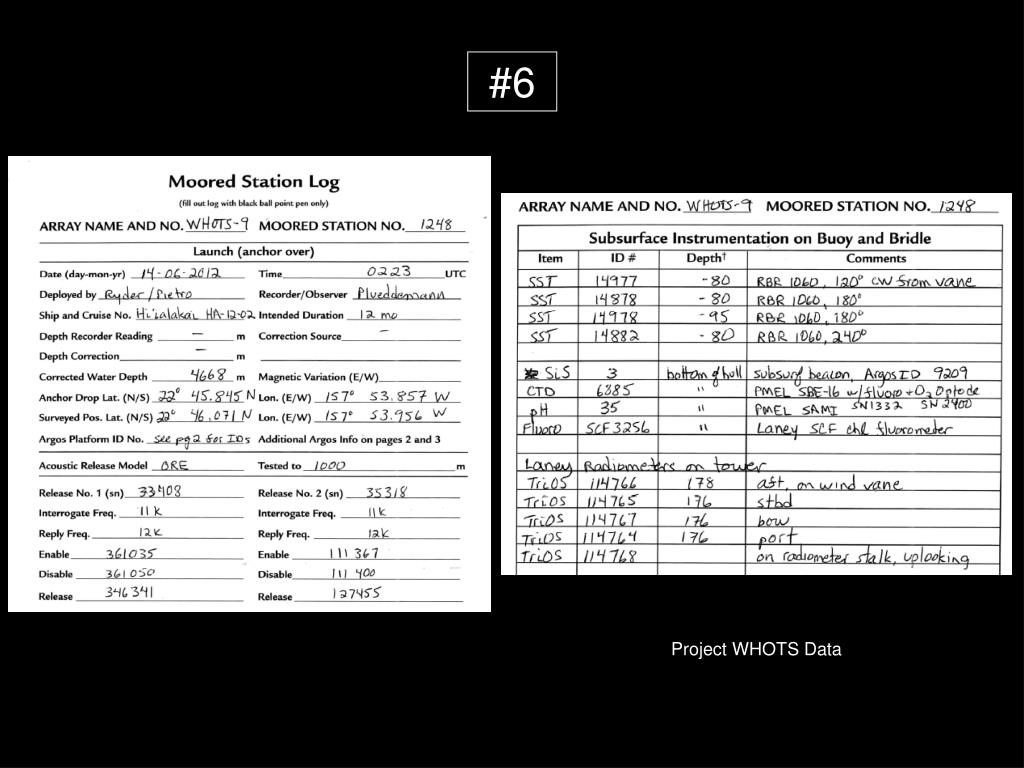 #6
Moored Station Log
(fill out log with black ball point pen only)
ARRAY NAME AND NO. WHOTS-9 MOORED STATION NO. 1248
Launch (anchor over)
Date (day-mon-yr) 14-06-2012 Time 0223 UTC
Deployed by Ryder/Pietro Recorder/Observer Plueddemann
Ship and Cruise No. Hi'ialakai HA-12-02 Intended Duration 12 mo
Depth Recorder Reading — m Correction Source –
Depth Correction — m
Corrected Water Depth 4668 m Magnetic Variation (E/W)
Anchor Drop Lat. (N/S) 22° 45.845 N Lon. (E/W) 157° 53.857 W
Surveyed Pos. Lat. (N/S) 22° 46.071 N Lon. (E/W) 157° 53.956 W
Argos Platform ID No. see pg 2 for IDs Additional Argos Info on pages 2 and 3
Acoustic Release Model ORE Tested to 1000 m
Release No. 1 (sn) 33408 Release No. 2 (sn) 35318
Interrogate Freq. 11K Interrogate Freq. 11K
Reply Freq. 12K Reply Freq. 12K
Enable 361035 Enable 111 367
Disable 361050 Disable 111 400
Release 346341 Release 127455
ARRAY NAME AND NO. WHOTS-9 MOORED STATION NO. 1248
Subsurface Instrumentation on Buoy and Bridle
Item ID # Depth† Comments
SST 14977 -80 RBR 1060, 120° CW from vane
SST 14878 -80 RBR 1060, 180°
SST 14978 -95 RBR 1060, 180°
SST 14882 -80 RBR 1060, 240°
SiS 3 bottom of hull subsurf beacon, Argos ID 9209
CTD 6885 " PMEL SBE-16 w/fluoro + O2 Optode
pH 35 " PMEL SAMI SN1332 SN 2400
Fluoro SCF3256 " Laney SCF chl fluorometer
Laney Radiometers on tower
TriOS 114766 178 aft, on wind vane
TriOS 114765 176 stbd
TriOS 114767 176 bow
TriOS 114764 176 port
TriOS 114768 on radiometer stalk, uplooking
Project WHOTS Data